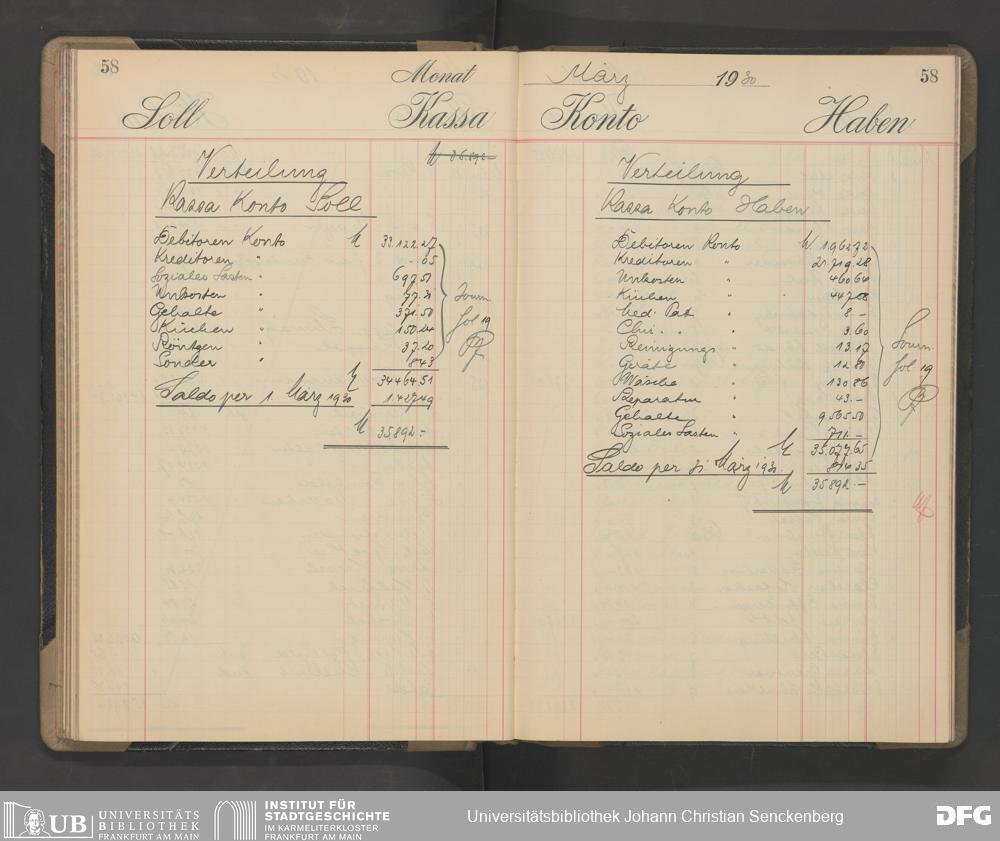 58
Monat
Soll Kassa
M 35.892.-
Verteilung
Kassa Konto Soll
Debitoren Konto M 33.122.27
Kreditoren " -.05
Soziales Lasten " 697.51
Unkosten " 77.31
Gehalte " 371.50
Küchen " 150.24
Röntgen " 37.20
Sonder " 8.43
Journ
fol 19
M 34464.51
Saldo per 1. März 1930 1.427.49
M 35.892.-
März 1930 58
Konto Haben
Verteilung
Kassa Konto Haben
Debitoren Konto M 1.962.72
Kreditoren " 21.719.28
Unkosten " 460.64
Küchen " 447.08
Med. Pat. " 8.-
Chir. " 3.60
Reinigungs " 13.17
Geräte " 12.80
Wäsche " 130.86
Reparatur " 43.-
Gehalte " 9.565.50
Soziales Lasten " 711.-
Journ.
fol 19
M 35.077.65
Saldo per 31 März 1930 814.35
M 35892.-
UB UNIVERSITÄTS
BIBLIOTHEK
FRANKFURT AM MAIN
INSTITUT FÜR
STADTGESCHICHTE
IM KARMELITERKLOSTER
FRANKFURT AM MAIN
Universitätsbibliothek Johann Christian Senckenberg
DFG